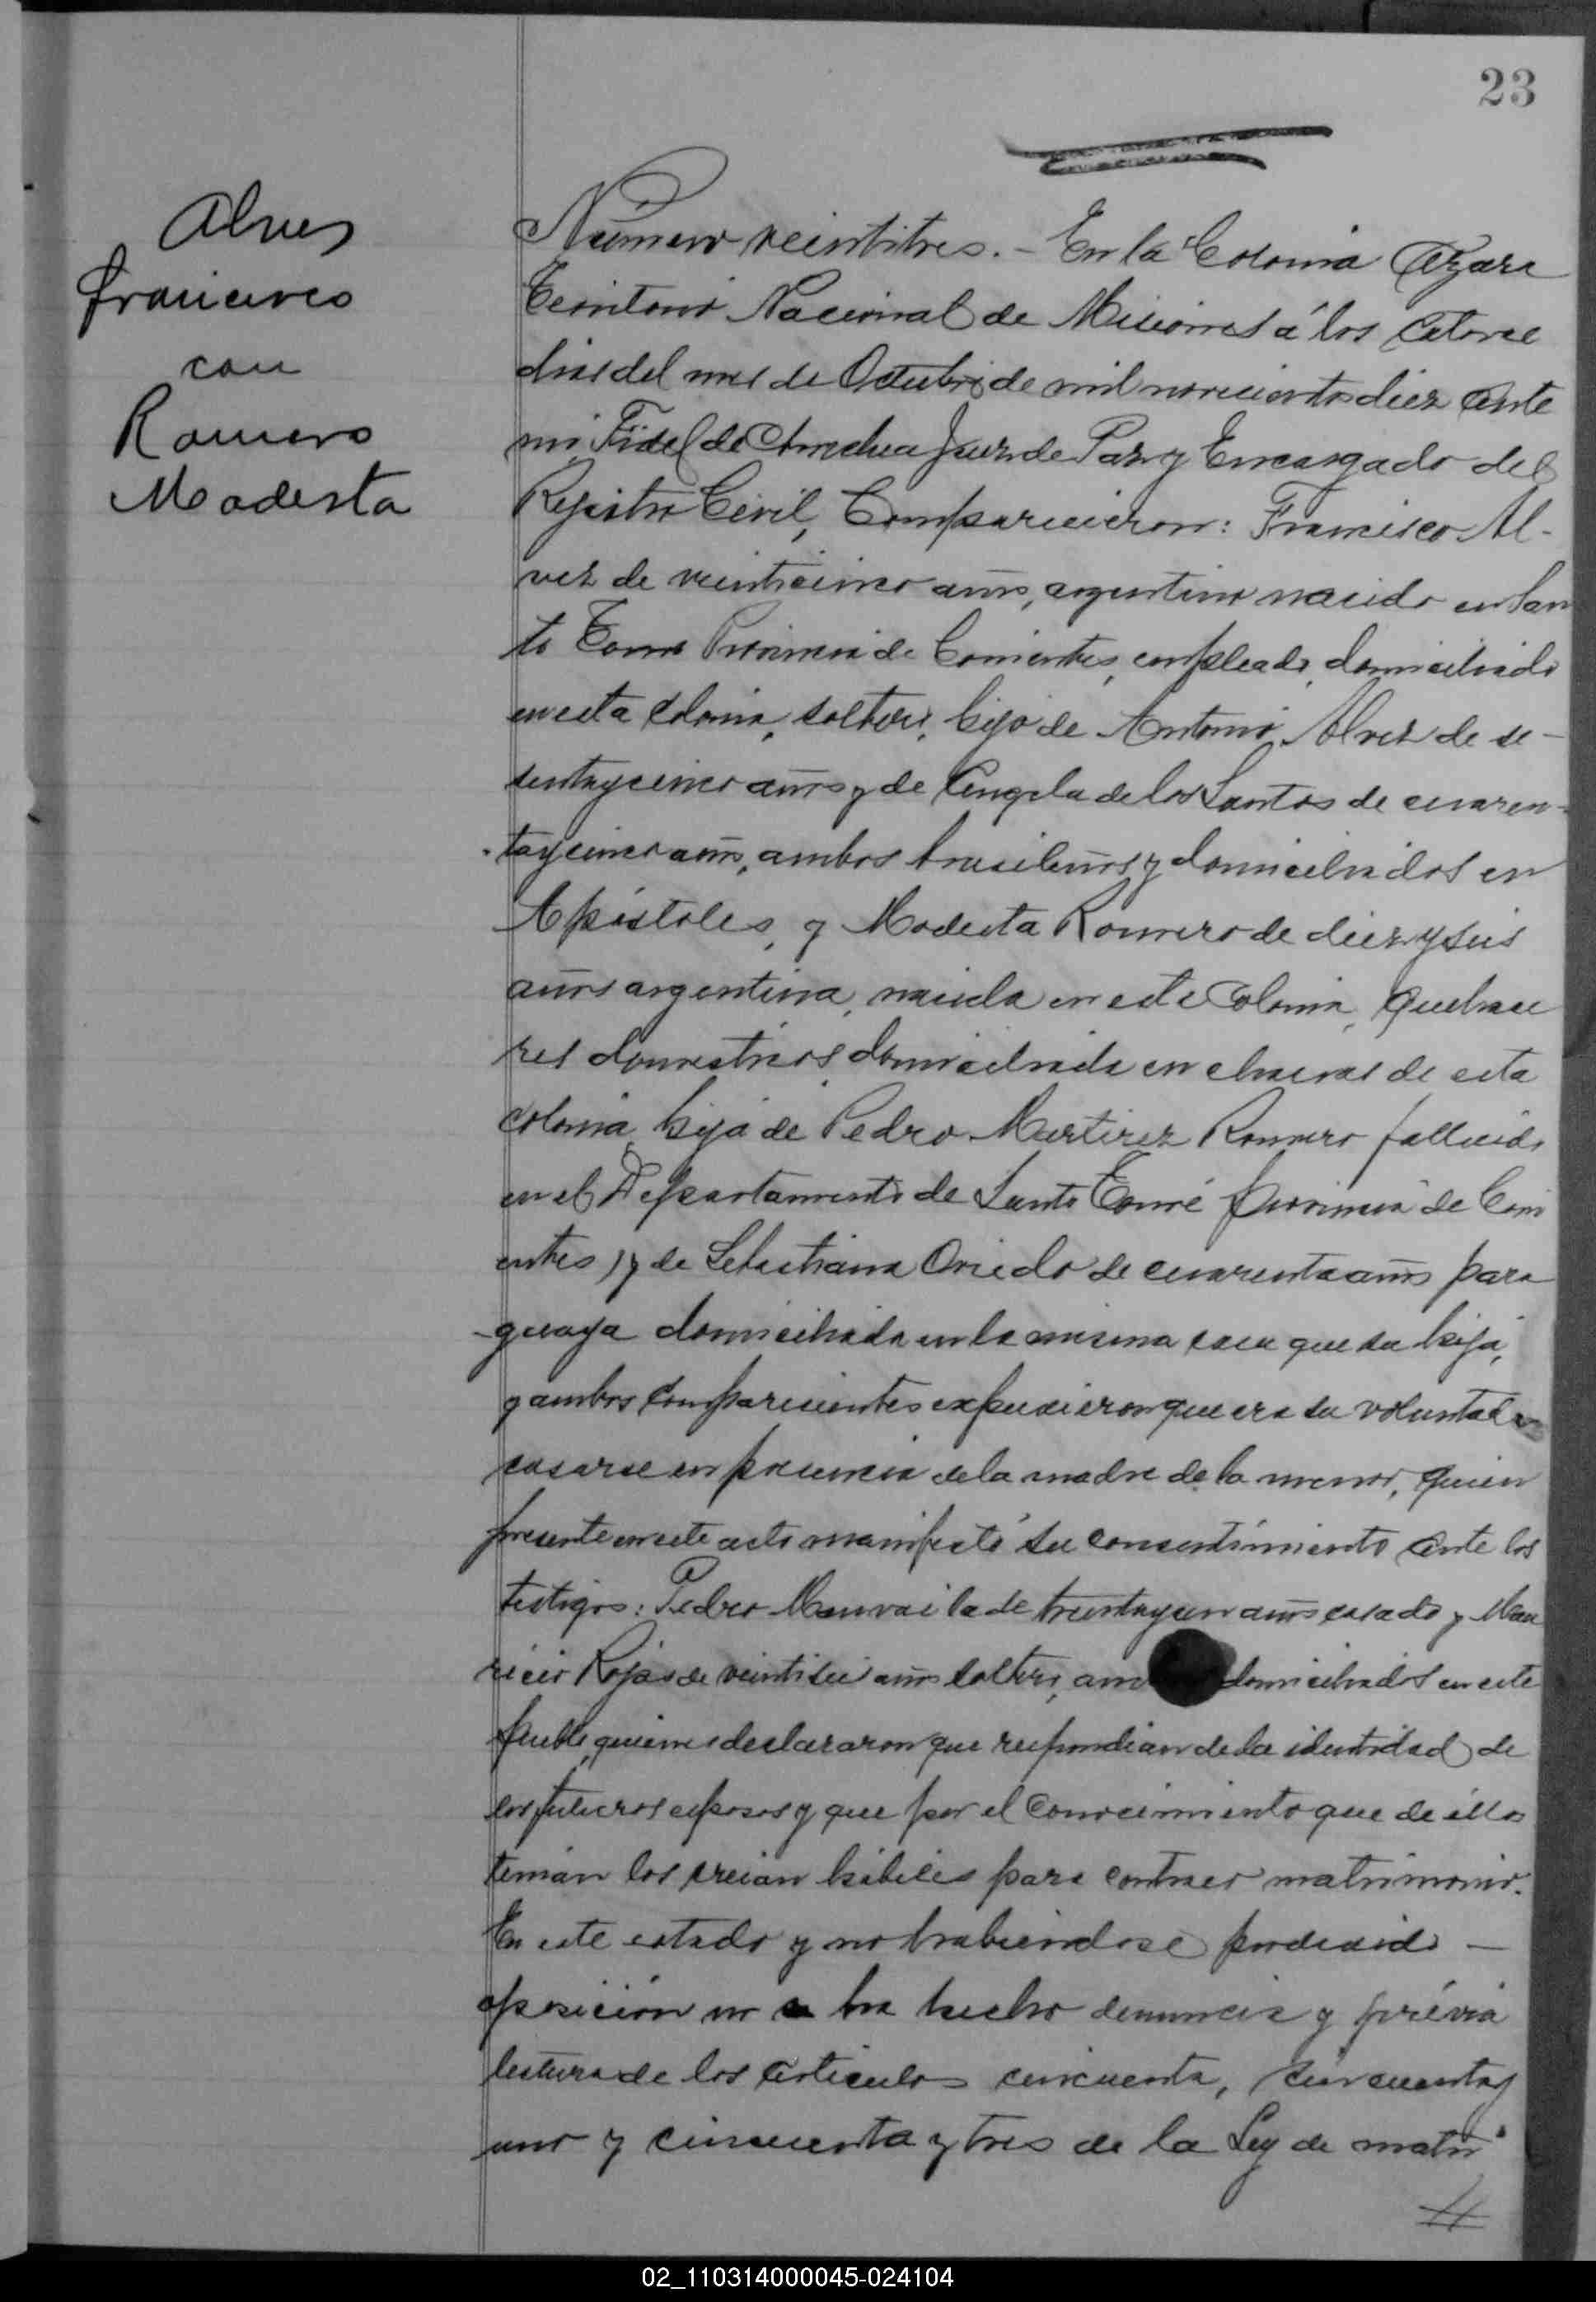 23
Alves
Francisco
con
Romero
Modesta
Número veintitres. - En la Colonia Azara
Territorio Nacional de Misiones á los catorce
dias del mes de Octubre de mil novecientos diez ante
mi, Fidel de Juez de Paz y Encargado del
Registro Civil, Comparecieron: Francisco Al-
vez de veinticinco años, argentino nacido en San
to Tomé Provincia de Corrientes, empleado, domiciliado
en esta colonia, soltero, hijo de Antonio Alvez de se-
senta y cinco años y de Angela de los Santos de cuaren-
ta y cinco años, ambos brasileños y domiciliados en
Apóstoles, y Modesta Romero de diez y seis
años argentina, nacida en esta Colonia, quehace
res domésticos domiciliada en chacras de esta
colonia, hija de Pedro Martirez Romero fallecido
en el Departamento de Santo Tomé provincia de Corri
entes, y de Sebastiana Oviedo de cuarenta años para
guaya domiciliada en la misma casa que su hija,
y ambos comparecientes expusieron que era su voluntad
casarse en presencia de la madre de la menor, quien
presente en este acto manifestó su consentimiento ante los
testigos: Pedro de treinta y un años casado y Mau
ricio Rojas de veintiseis años soltero, am domiciliados en este
pueblo, quienes declararon que respondian de la identidad de
los futuros esposos y que por el conocimiento que de éllos
tenian los creian hábiles para contraer matrimonio.
En este estado y no habiendose producido -
oposición ni se ha hecho denuncia y prévia
lectura de los articulos cincuenta, cincuenta y
uno y cincuenta y tres de la Ley de matri
//
02_110314000045-024104